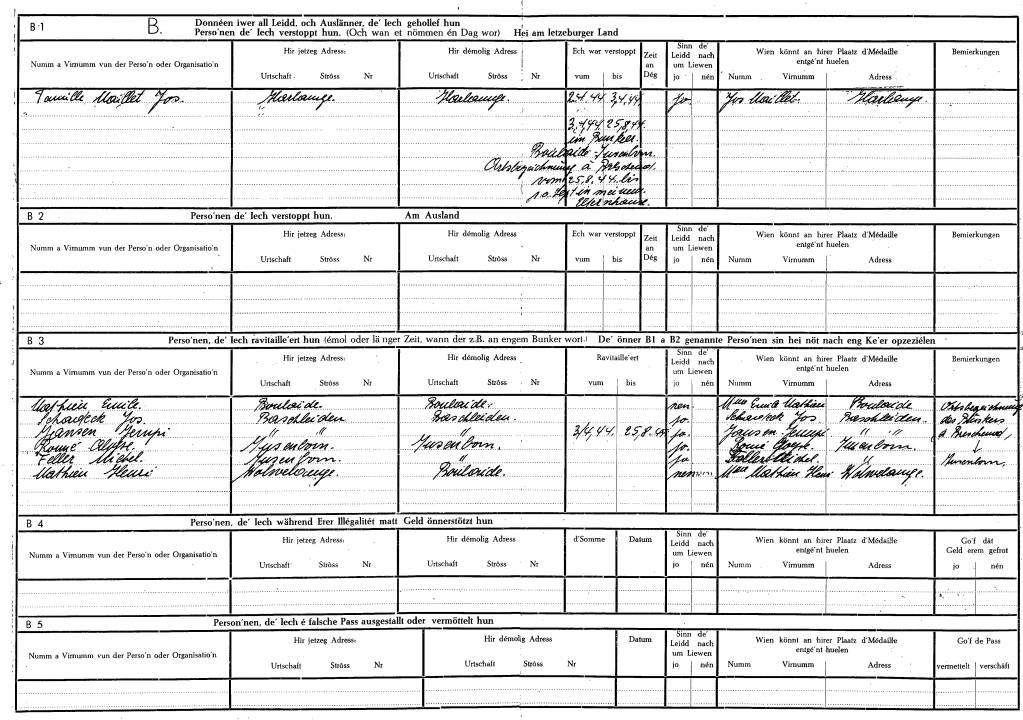 B·1 B. Donnéen iwer all Leidd, och Auslänner, de' Iech gehollef hun
Perso'nen de' Iech verstoppt hun. (Och wan et nömmen én Dag wor) Hei am letzeburger Land
Numm a Virnumm vun der Perso'n oder Organisatio'n
Hir jetzeg Adress:
Urtschaft Ströss Nr
Hir démolig Adress
Urtschaft Ströss Nr
Ech war verstoppt
vum bis
Zeit an Dég
Sinn de' Leidd nach um Liewen
jo nén
Wien könnt an hirer Plaatz d'Médaille entgé'nt huelen
Numm Virnumm Adress
Bemierkungen
Famille Maillet Jos. Harlange. Harlange. 2.4.44 3.4.44 jo. Jos Maillet. Harlange.
3.4.44 25.8.44.
im Bunker.
Boulaide-Jusenborn.
Ortsbezeichnung à
vom 25.8.44. bis
in meinem
Elternhause.
B 2 Perso'nen de' Iech verstoppt hun. Am Ausland
Numm a Virnumm vun der Perso'n oder Organisatio'n
Hir jetzeg Adress:
Urtschaft Ströss Nr
Hir démolig Adress:
Urtschaft Ströss Nr
Ech war verstoppt
vum bis
Zeit an Dég
Sinn de' Leidd nach um Liewen
jo nén
Wien könnt an hirer Plaatz d'Médaille entgé'nt huelen
Numm Virnumm Adress
Bemierkungen
B 3 Perso'nen, de' Iech ravitaille'ert hun (émol oder länger Zeit, wann der z.B. an engem Bunker wort.) De' önner B1 a B2 genannte Perso'nen sin hei nöt nach eng Ke'er opzeziélen
Numm a Virnumm vun der Perso'n oder Organisatio'n
Hir jetzeg Adress:
Urtschaft Ströss Nr
Hir démolig Adress:
Urtschaft Ströss Nr
Ravitaille'ert
vum bis
Sinn de' Leidd nach um Liewen
jo nén
Wien könnt an hirer Plaatz d'Médaille entgé'nt huelen
Numm Virnumm Adress
Bemierkungen
Mathieu Emile. Boulaide. Boulaide. nen. Mme Emile Mathieu Boulaide. Ortsbezeichnung
Jos. Baschleiden Baschleiden. jo. Jos. Baschleiden. des Bunkers
Jansen Jempi " " 3/4.44. 25.8.44 jo. Jansen Jempi " "
Jusenborn. Jusenborn. jo. Jusenborn.
Feller Michel Jusenborn. " jo Feller Michel. " Jusenborn.
Mathieu Henri Wolwelange. Boulaide. nen Mme Mathieu Henri Wolwelange.
B 4 Perso'nen, de' Iech während Erer Illégalitét matt Geld önnerstötzt hun
Numm a Virnumm vun der Perso'n oder Organisatio'n
Hir jetzeg Adress:
Urtschaft Ströss Nr
Hir démolig Adress:
Urtschaft Ströss Nr
d'Somme
Datum
Sinn de' Leidd nach um Liewen
jo nén
Wien könnt an hirer Plaatz d'Médaille entgé'nt huelen
Numm Virnumm Adress
Go'f dât Geld erem gefrot
jo nén
B 5 Person'nen, de' Iech é falsche Pass ausgestallt oder vermöttelt hun
Numm a Virnumm vun der Perso'n oder Organisatio'n
Hir jetzeg Adress:
Urtschaft Ströss Nr
Hir démolig Adress:
Urtschaft Ströss Nr
Datum
Sinn de' Leidd nach um Liewen
jo nén
Wien könnt an hirer Plaatz d'Médaille entgé'nt huelen
Numm Virnumm Adress
Go'f de Pass
vermettelt verschäft